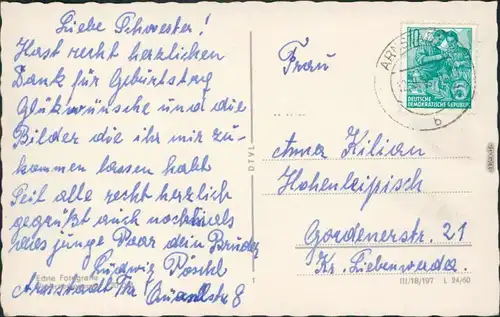 Liebe Schwester!
Hast recht herzlichen
Dank für Geburtstag
Glükwünsche und die
Bilder die ihr mir zu-
kommen lassen habt
Seit alle recht herzlich
gegrüßt auch nochmals
das junge Paar dein Bruder
Ludwig
Arnstadt Thr 8
Echte Fotografie
DTVL
Frau
Anna Kilian
Hohenleipisch
Gordenerstr. 21
Kr. Liebenwerda
III/18/197 L 24/60
10
DEUTSCHE
DEMOKRATISCHE REPUBLIK
ARNSTADT
b